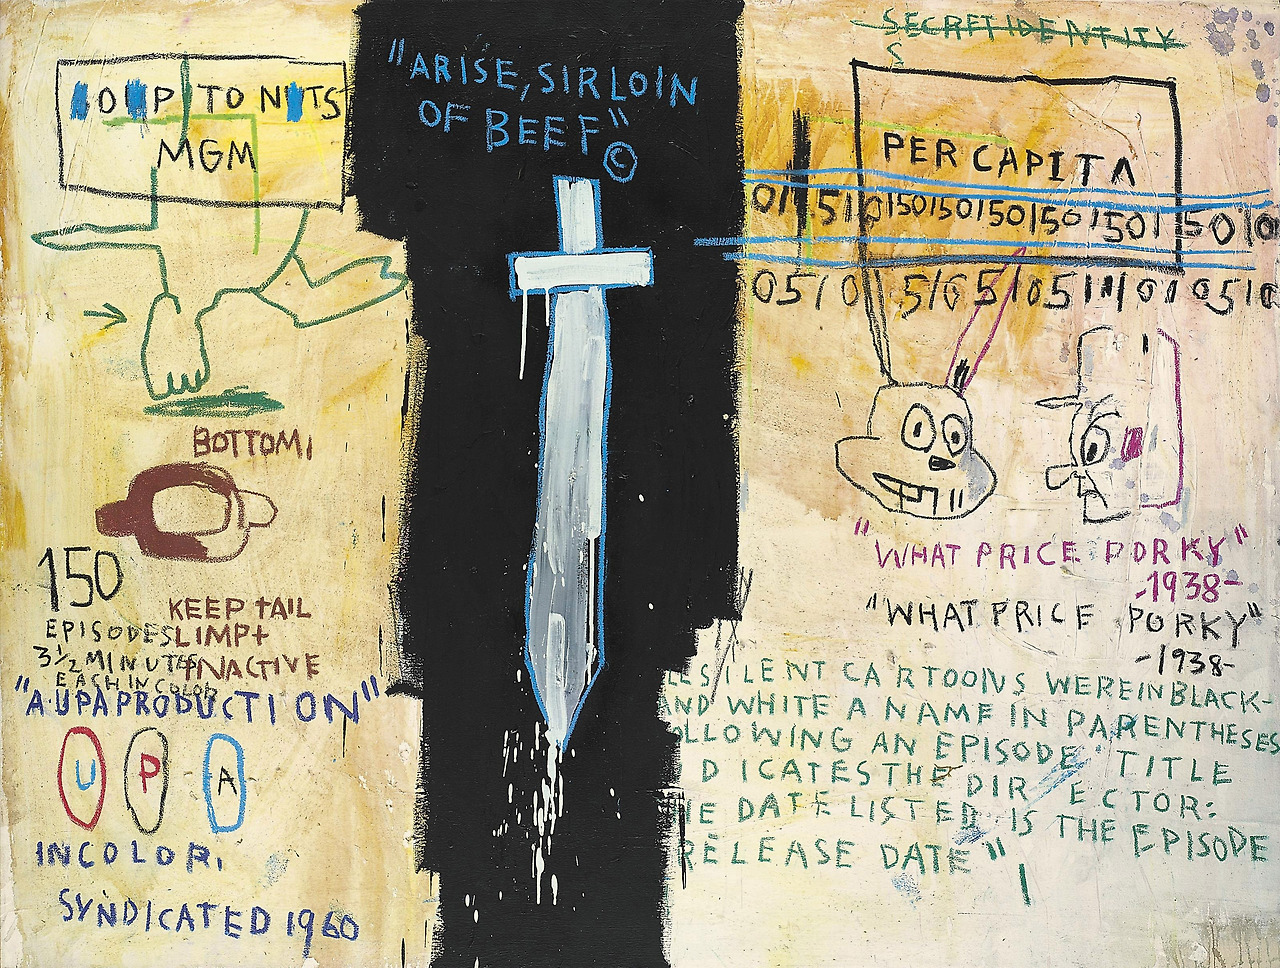 SOUP TO NUTS
MGM
BOTTOM,
150
EPISODES
3½ MINUTES
EACH IN COLOR
KEEP TAIL
LIMP+
INACTIVE
"A UPA PRODUCTION"
U P A
IN COLOR,
SYNDICATED 1960
"ARISE, SIRLOIN
OF BEEF"
©
SECRET IDENTITY
S
PER CAPITA
"WHAT PRICE PORKY"
-1938-
"WHAT PRICE PORKY"
-1938-
ES SILENT CARTOONS WERE IN BLACK-
AND WHITE A NAME IN PARENTHESES
OLLOWING AN EPISODE TITLE
DICATES THE DIRECTOR:
HE DATE LISTED IS THE EPISODE
RELEASE DATE"